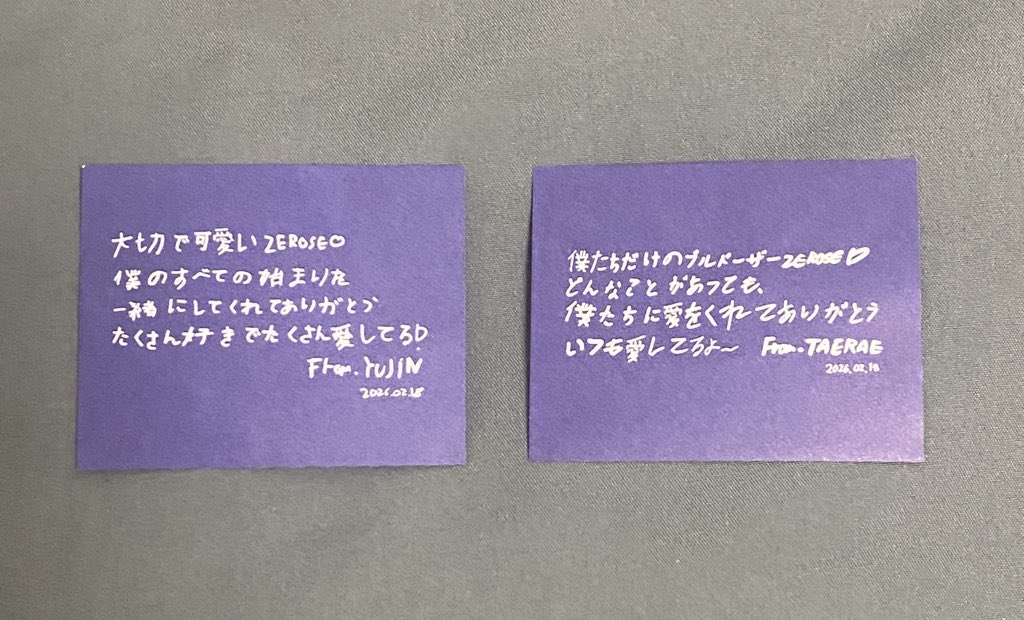 大切で可愛いZEROSE♡
僕のすべての始まりを
一緒にしてくれてありがとう
たくさん好きでたくさん愛してる♡
From.YUJIN
2026.02.18
僕たちだけのブルドーザーZEROSE♡
どんなことがあっても、
僕たちに愛をくれてありがとう
いつも愛してるよ～ From.TAERAE
2026.02.18